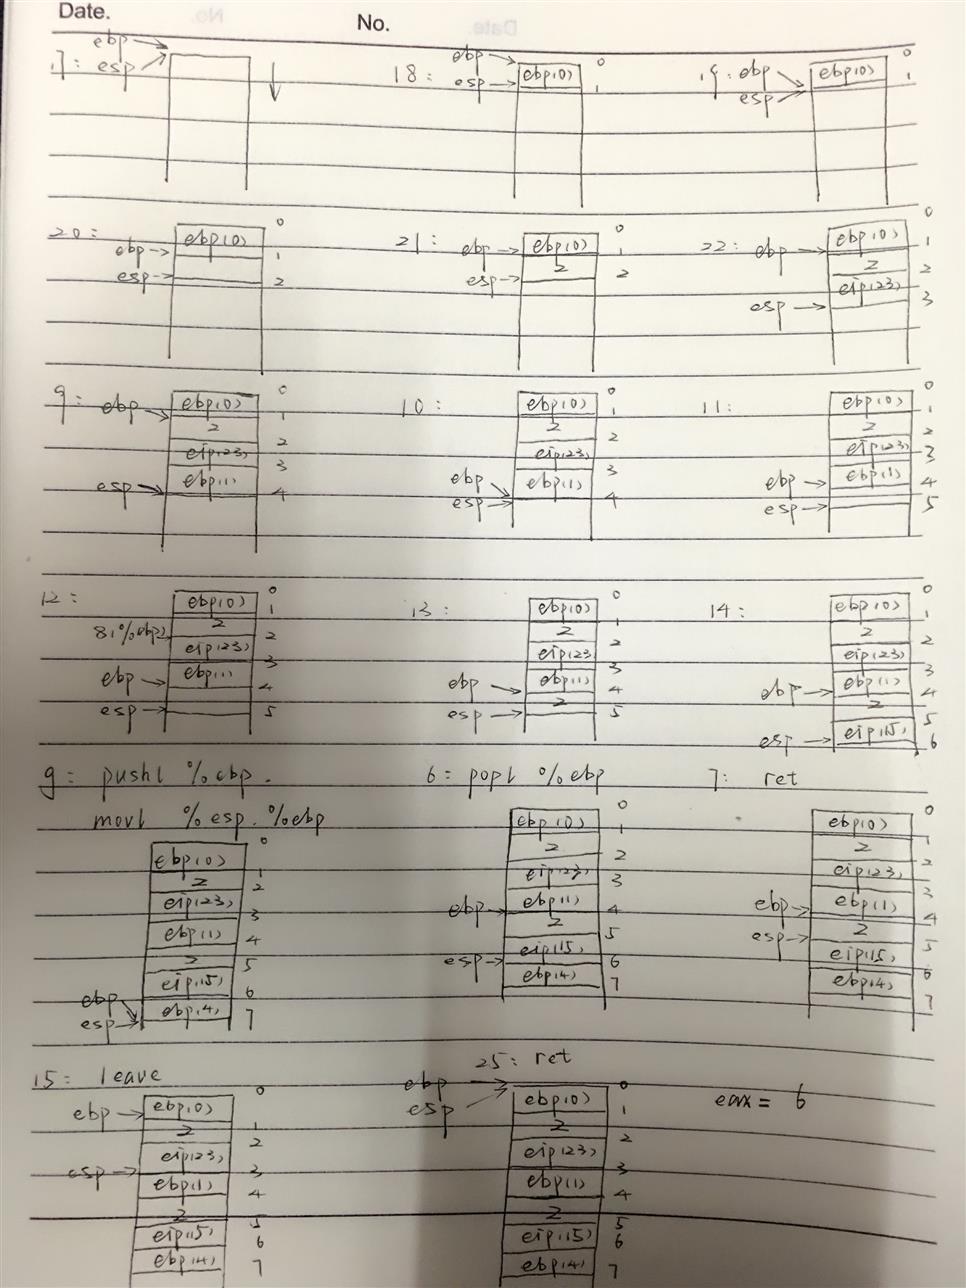 Date.
No.
17: ebp esp 18: ebp esp ebp(0) 0 1 19: ebp esp ebp(0) 0 1
20: ebp esp ebp(0) 0 1 2 21: ebp esp ebp(0) 2 0 1 2 22: ebp esp ebp(0) 2 eip(23) 0 1 2 3
9: ebp esp ebp(0) 2 eip(23) ebp(1) 0 1 2 3 4 10: ebp esp ebp(0) 2 eip(23) ebp(1) 0 1 2 3 4 11: ebp esp ebp(0) 2 eip(23) ebp(1) 0 1 2 3 4 5
12: 8(%ebp) ebp esp ebp(0) 2 eip(23) ebp(1) 0 1 2 3 4 5 13: ebp esp ebp(0) 2 eip(23 ebp(1) 2 0 1 2 3 4 5 14: ebp esp ebp(0) 2 eip(23) ebp(1) 2 eip(15) 0 1 2 3 4 5 6
9: pushl %ebp. 6: popl %ebp 7: ret
movl %esp. %ebp
ebp esp ebp(0) 2 eip(23) ebp(1) 2 eip(15) ebp(4) 0 1 2 3 4 5 6 7 ebp esp ebp(0) 2 eip(23) ebp(1) 2 eip(15) ebp(4) 0 1 2 3 4 5 6 7 ebp esp ebp(0) 2 eip(23) ebp(1) 2 eip(15) ebp(4) 0 1 2 3 4 5 6 7
15: leave 25: ret
ebp esp ebp(0) 2 eip(23) ebp(1) 2 eip(15) ebp(4) 0 1 2 3 4 5 6 7 ebp esp ebp(0) 2 eip(23) ebp(1) 2 eip(15) ebp(4) 0 1 2 3 4 5 6 7 eax = 6